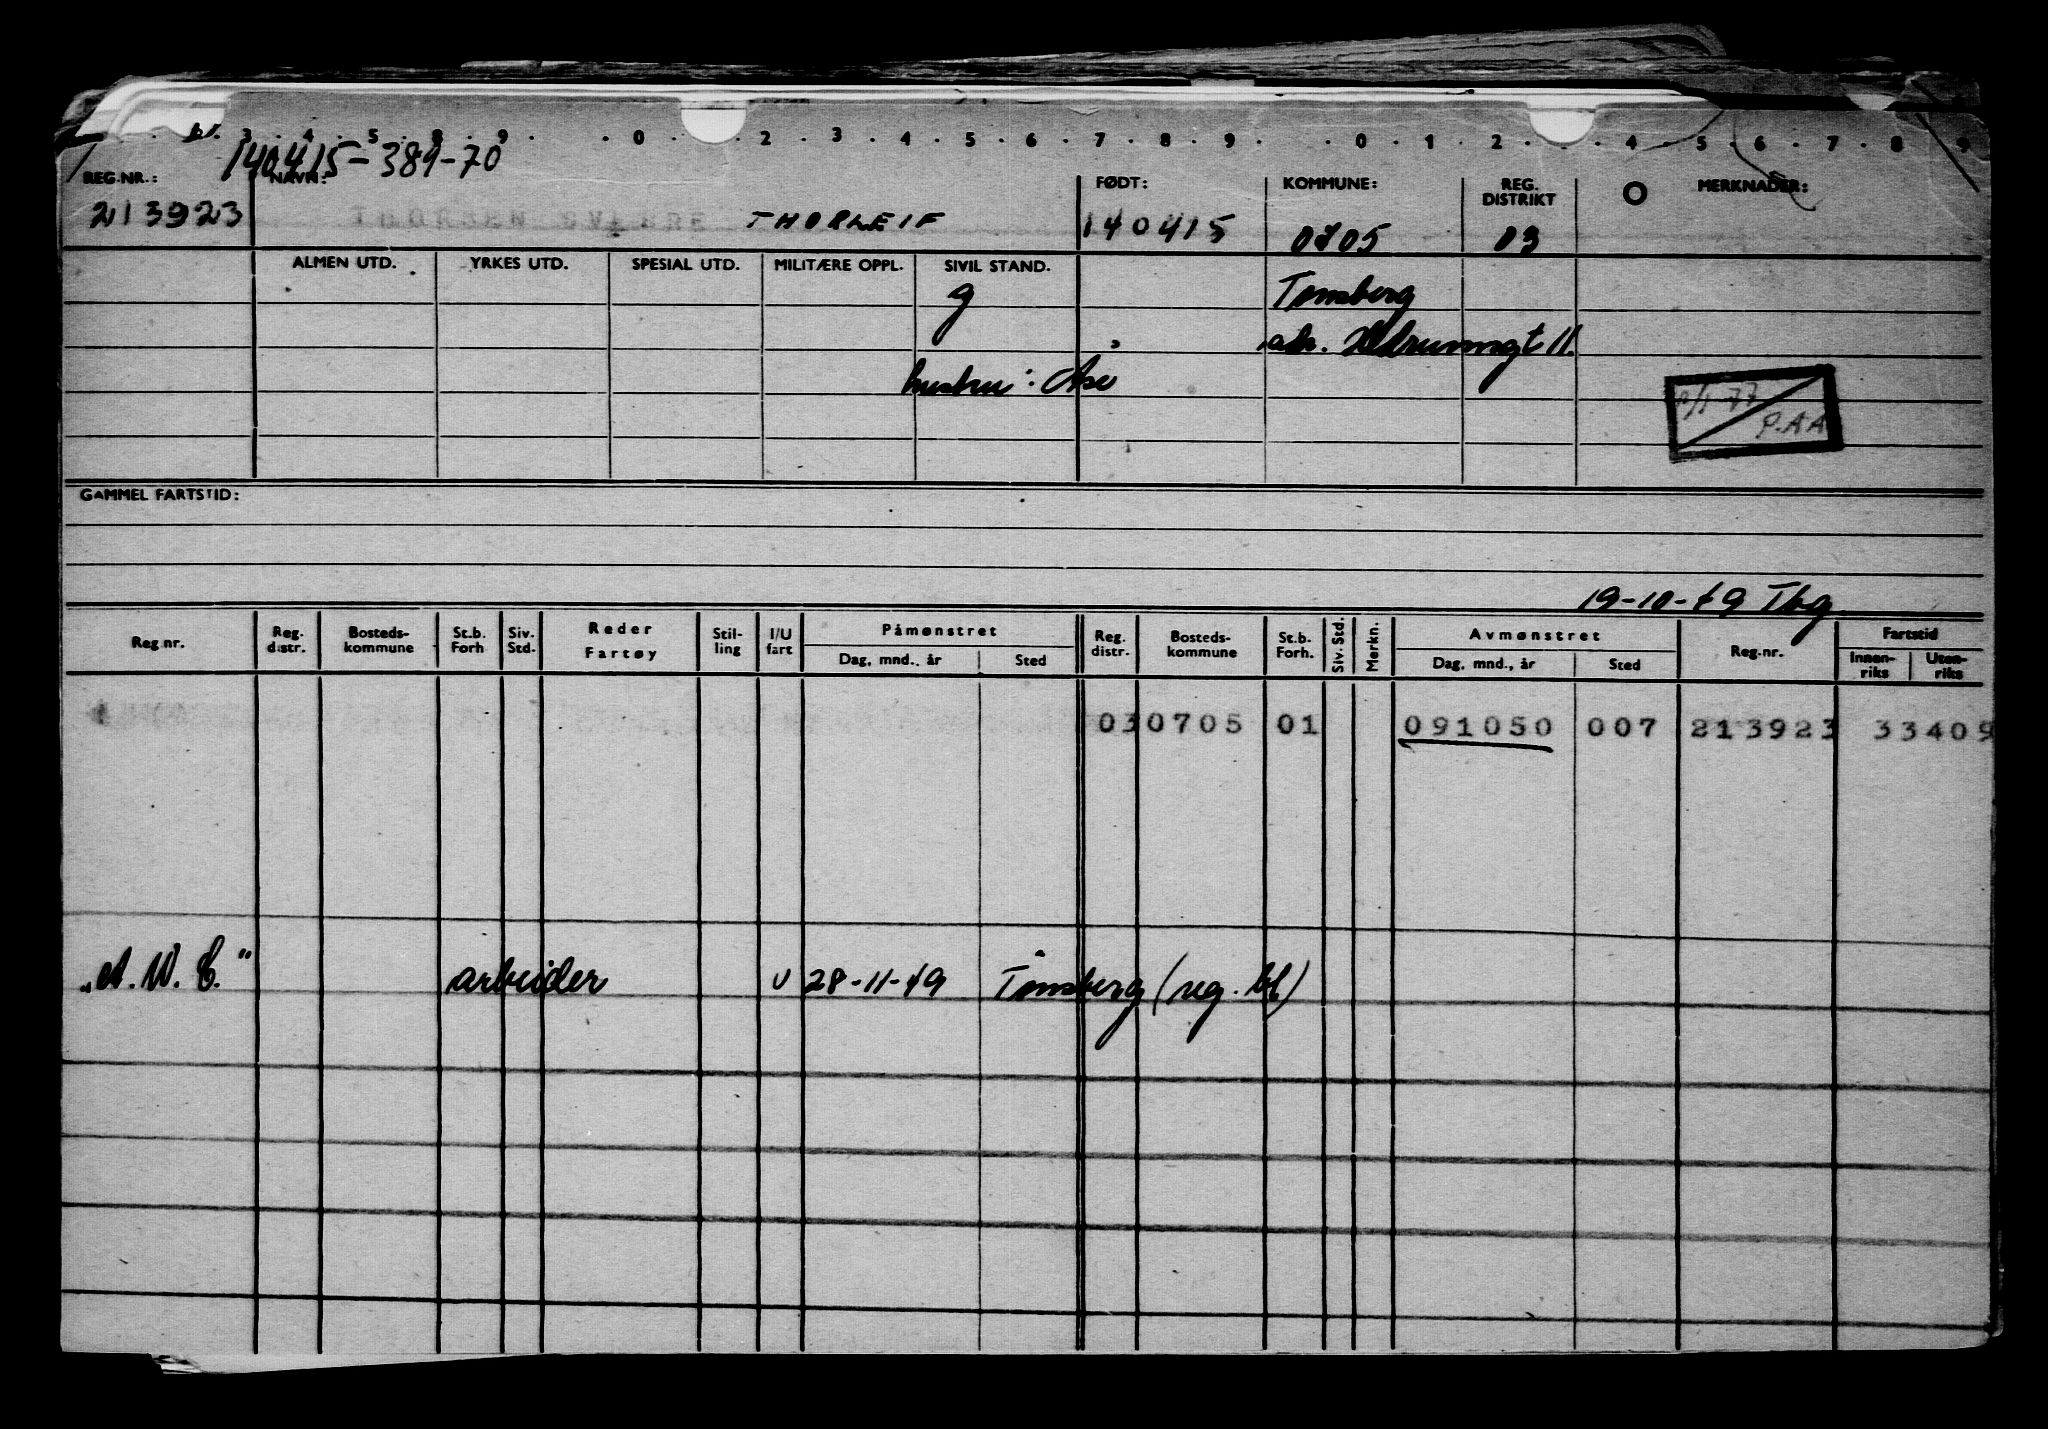 3 . 4 . 5 . 8 . 9 . . 0 . . 2 . 3 . 4 . 5 . 6 . 7 . 8 . 9 . . 0 . 1 . 2 . . 4 . 5 . 6 . 7 . 8 . 9
140415-389-70
REG.NR.: NAVN: FØDT: KOMMUNE: REG. DISTRIKT MERKNADER:
213923 THORSEN SVERRE THORLEIF 140415 0705 03
ALMEN UTD. YRKES UTD. SPESIAL UTD. MILITÆRE OPPL. SIVIL STAND.
g Tønsberg
adr. 11.
hustru: Åse
77
P.AA
GAMMEL FARTSTID:
19-10-49 Tbg
Reg.nr. Reg. distr. Bosteds-kommune St.b. Forh Siv. Std. Reder Fartøy Stil-ling I/U fart Påmønstret Dag, mnd., år Sted Reg. distr. Bosteds-kommune St.b. Forh. Siv. Std. Merkn. Avmønstret Dag, mnd., år Sted Reg.nr. Fartstid Innen-riks Uten-riks
030705 01 091050 007 213923 33409
arbeider U 28-11-49 Tønsberg (reg. bl)